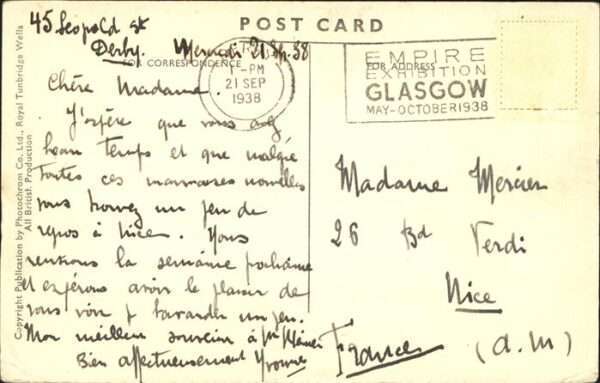 POST CARD
45 Leopold St
Derby. Mercredi 21.Sp.38
FOR CORRESPONDENCE
1-PM
21 SEP
1938
FOR ADDRESS
EMPIRE
EXHIBITION
GLASGOW
MAY-OCTOBER 1938
Chère Madame.
J'espère que vous avez
beau temps et que malgré
toutes ces mauvaises nouvelles
vous trouvez un peu de
repos à Nice. Nous
rentrons la semaine prochaine
et espérons avoir le plaisir de
vous voir & bavarder un peu.
Mon meilleur souvenir à Mr
Bien affectueusement Yvonne
Madame Mercier
26 Bd Verdi
Nice
France (A.M)
Copyright Publication by Photochrom Co., Ltd., Royal Tunbridge Wells
All British Production